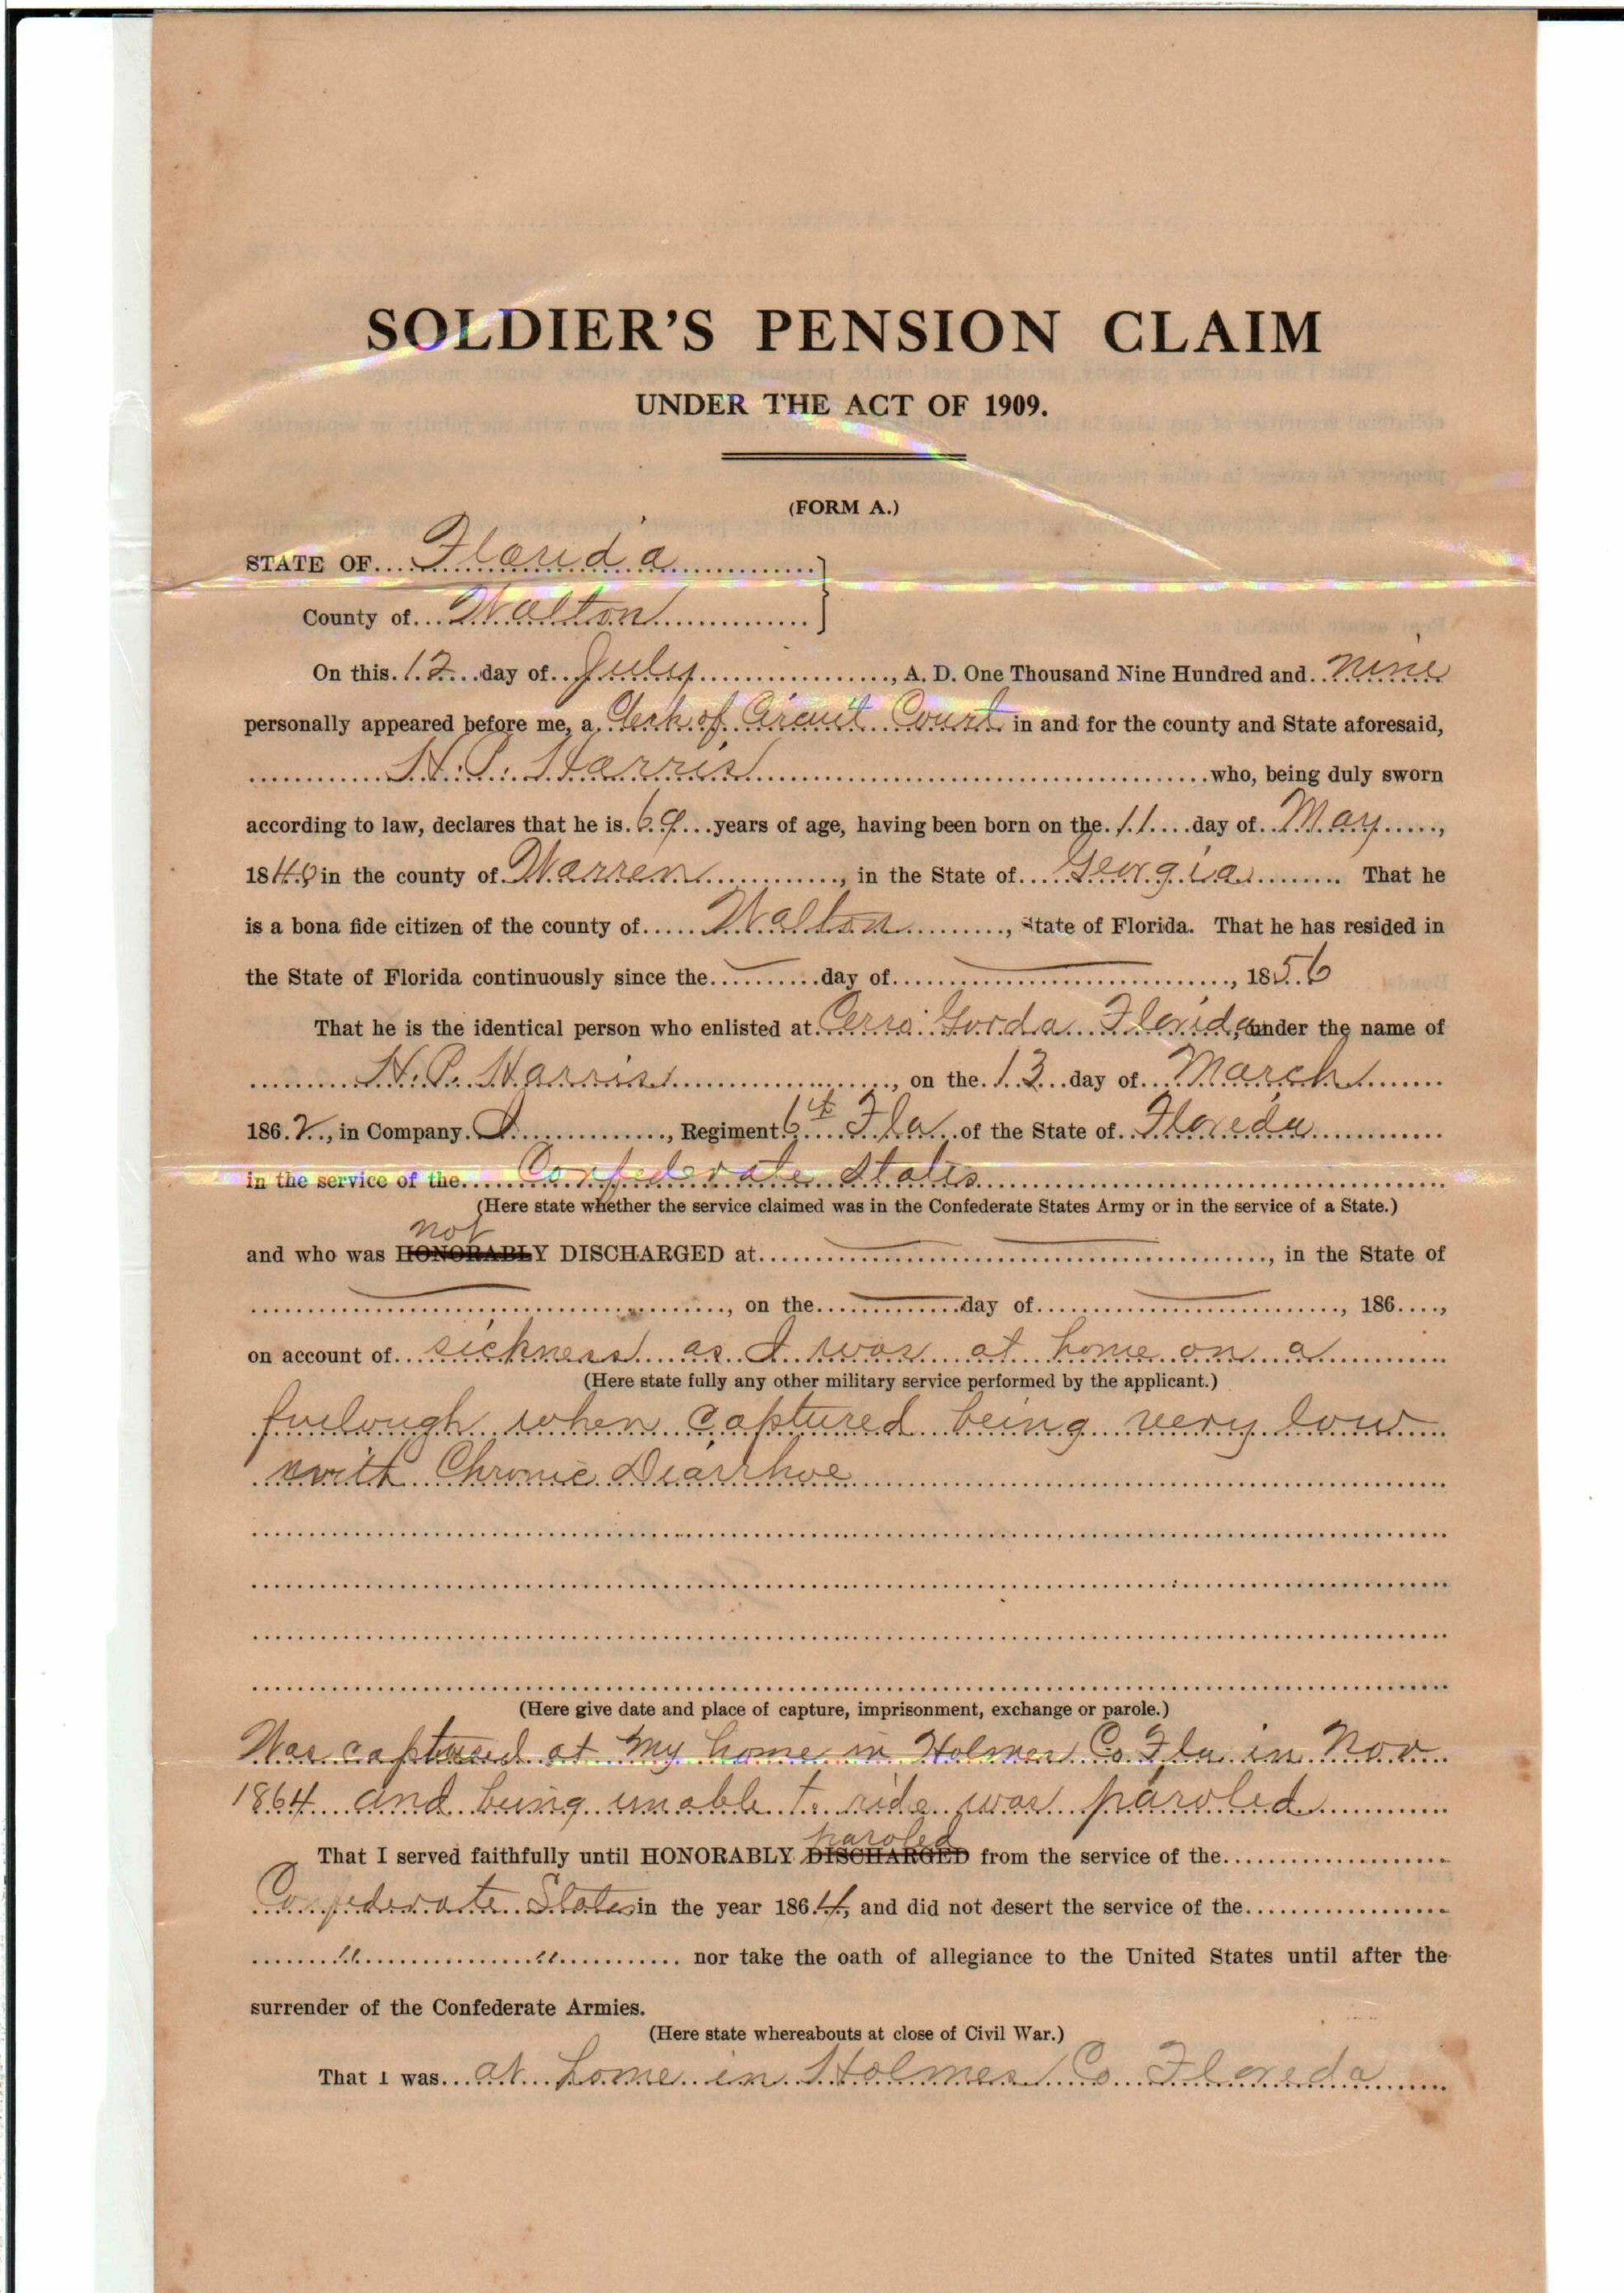 SOLDIER'S PENSION CLAIM
UNDER THE ACT OF 1909.
(FORM A.)
STATE OF Florida
County of Walton
On this 12 day of July, A. D. One Thousand Nine Hundred and nine
personally appeared before me, a Clerk of Circuit Court in and for the county and State aforesaid,
H. P. Harris who, being duly sworn
according to law, declares that he is 69 years of age, having been born on the 11 day of May,
1840 in the county of Warren, in the State of Georgia. That he
is a bona fide citizen of the county of Walton, State of Florida. That he has resided in
the State of Florida continuously since the — day of —, 1856
That he is the identical person who enlisted at Cerro Gorda Florida, under the name of
H. P. Harris, on the 13 day of March
1862, in Company I, Regiment 6th Fla of the State of Floreda
in the service of the Confederate States
(Here state whether the service claimed was in the Confederate States Army or in the service of a State.)
not
and who was HONORABLY DISCHARGED at — —, in the State of
—, on the — day of —, 186....,
on account of sickness as I was at home on a
(Here state fully any other military service performed by the applicant.)
furlough when captured being very low
with Chronic Diarrhoe
(Here give date and place of capture, imprisonment, exchange or parole.)
Was captured at my home in Holmes Co Fla in Nov
1864 and being unable to ride was paroled
paroled
That I served faithfully until HONORABLY DISCHARGED from the service of the
Confederate States in the year 1864, and did not desert the service of the
" " nor take the oath of allegiance to the United States until after the
surrender of the Confederate Armies.
(Here state whereabouts at close of Civil War.)
That I was at home in Holmes Co Floreda